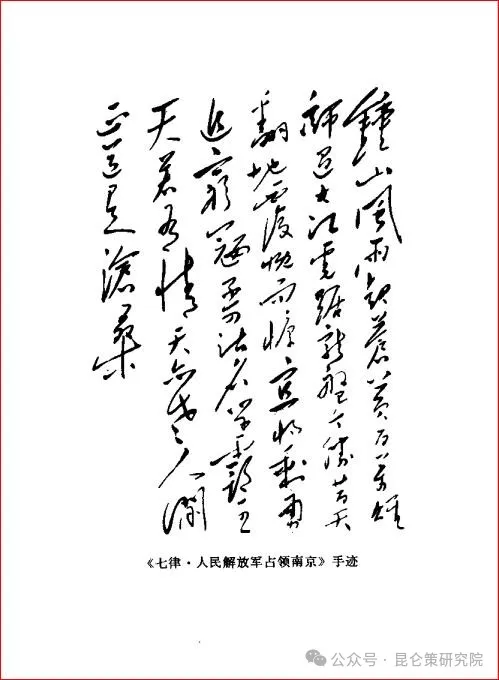 鍾山風雨起蒼黃百万雄
師過大江虎踞龍盤今勝昔天
翻地覆慨而慷宜將剩勇
追窮寇不可沽名学霸王
天若有情天亦老人間
正道是滄桑
《七律·人民解放军占领南京》手迹
公众号·昆仑策研究院